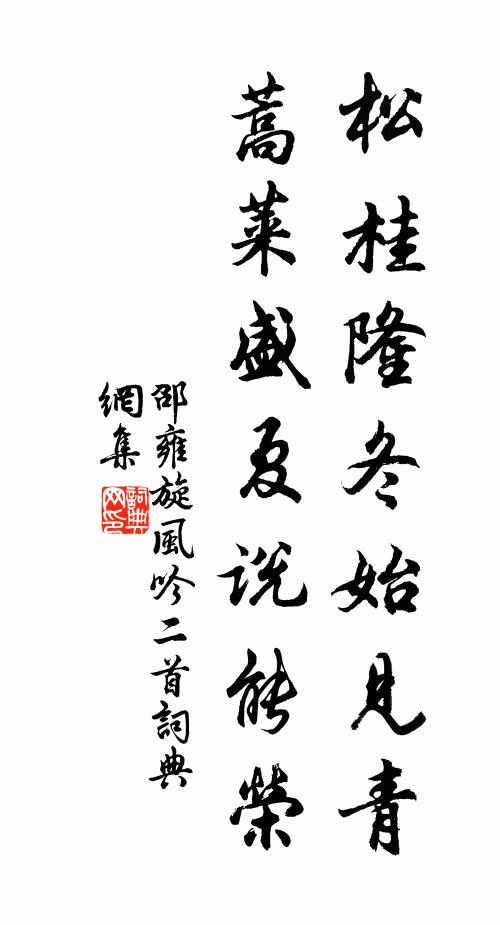 松桂隆冬始見青
蒿萊盛夏說能榮
邵雍旋風吟二首詞典
網集
詞典
網印